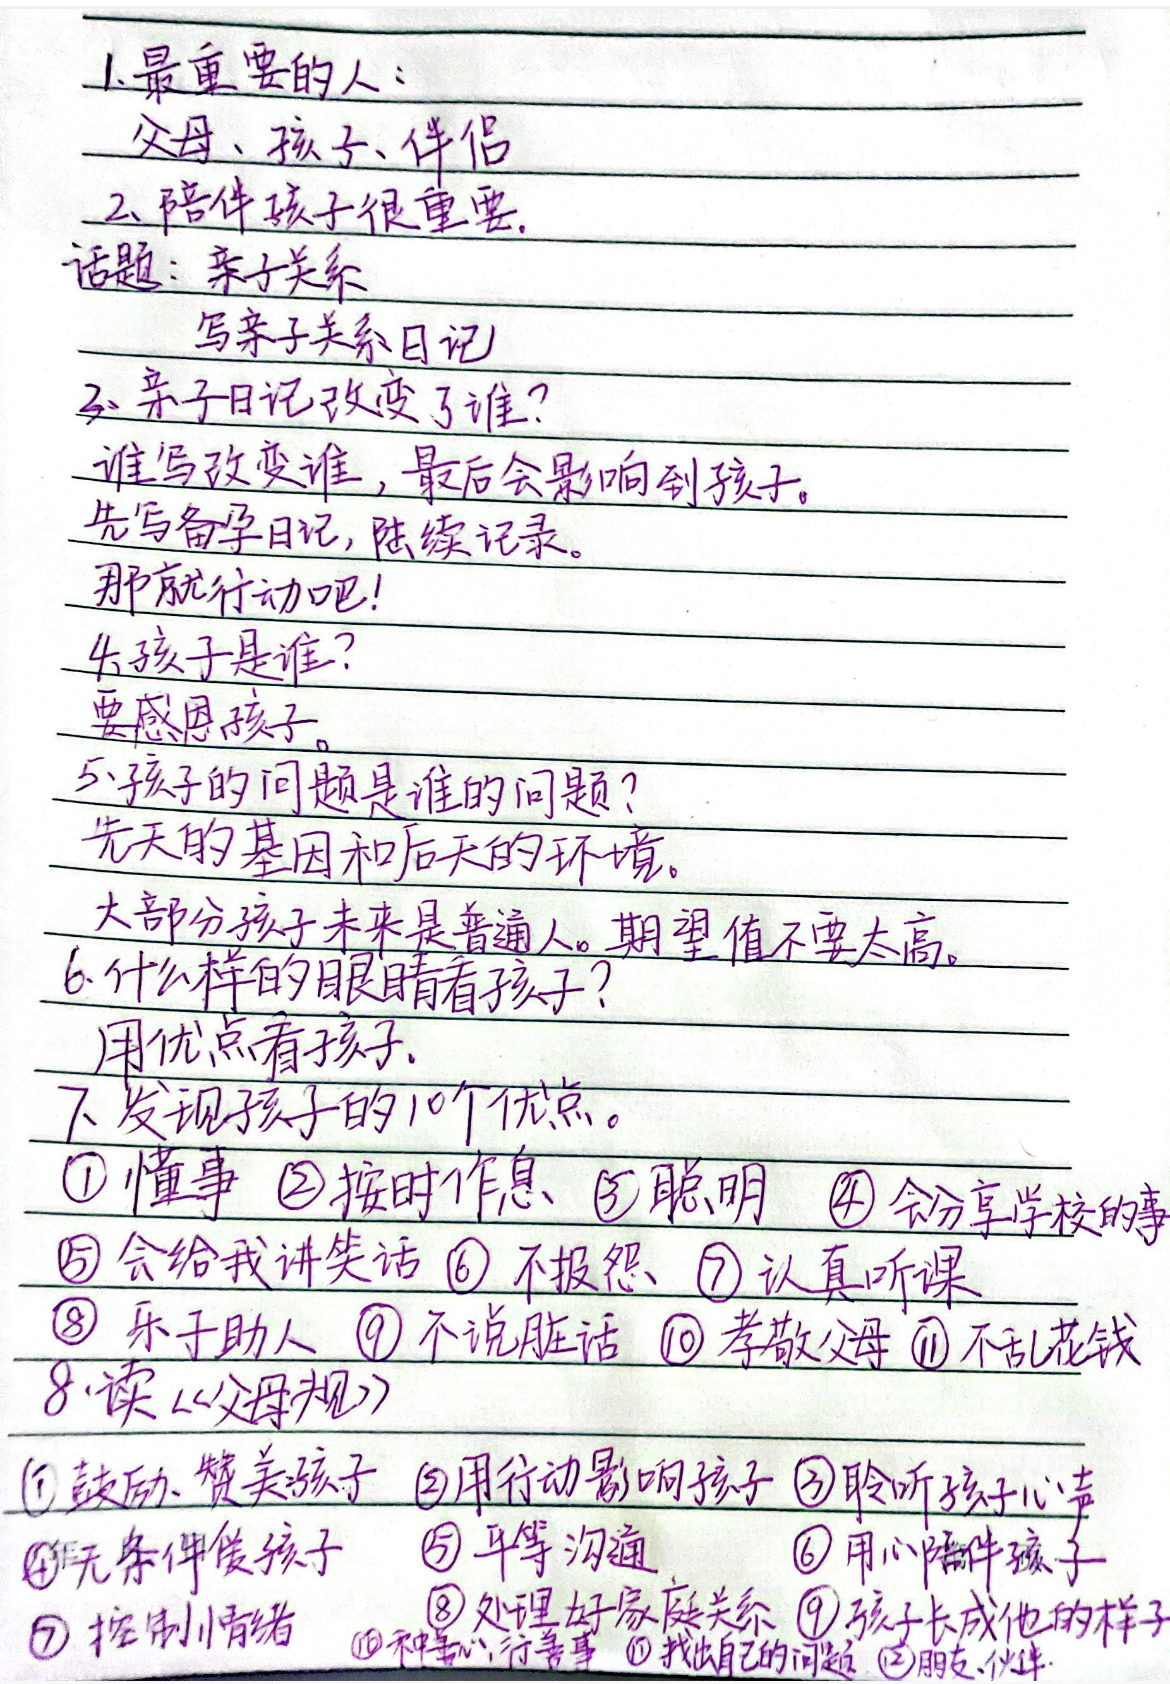 1.最重要的人：
父母、孩子、伴侣
2、陪伴孩子很重要.
话题：亲子关系
写亲子关系日记
3、亲子日记改变了谁？
谁写改变谁，最后会影响到孩子。
先写备孕日记，陆续记录。
那就行动吧！
4、孩子是谁？
要感恩孩子。
5、孩子的问题是谁的问题？
先天的基因和后天的环境。
大部分孩子未来是普通人。期望值不要太高。
6.什么样的眼睛看孩子？
用优点看孩子.
7、发现孩子的10个优点。
①懂事 ②按时作息、 ③聪明 ④会分享学校的事
⑤会给我讲笑话 ⑥不报怨、 ⑦认真听课
⑧乐于助人 ⑨不说脏话 ⑩孝敬父母 ⑪不乱花钱
8.读《父母规》
①鼓励、赞美孩子 ②用行动影响孩子 ③聆听孩子心声
④无条件爱孩子 ⑤平等沟通 ⑥用心陪伴孩子
⑦控制情绪 ⑧处理好家庭关系 ⑨孩子长成他的样子
⑩种善心，行善事 ⑪找出自己的问题 ⑫朋友、伙伴.